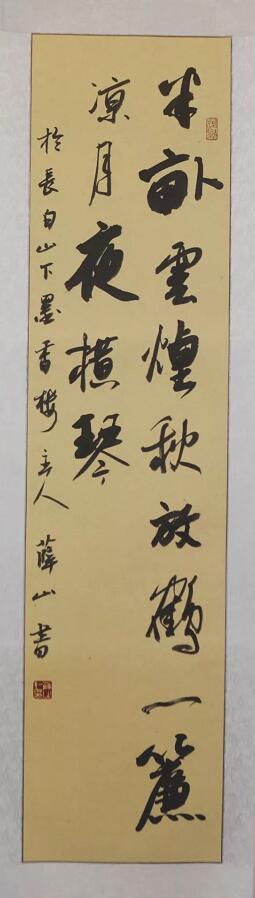 半畝雲煙秋放鶴一簾
涼月夜橫琴
於長白山下墨香樓主人 薛山書